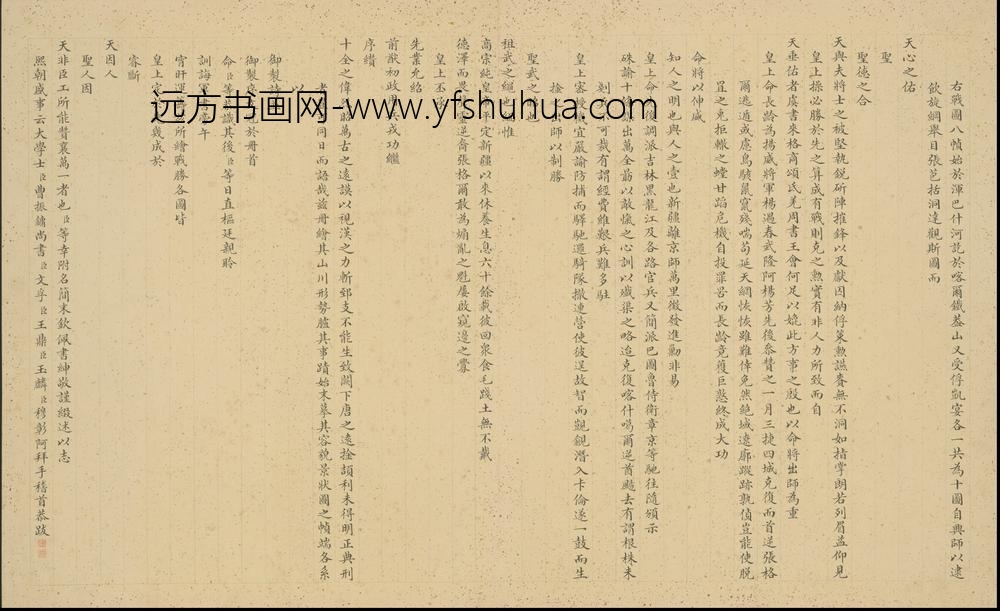 右戰圖八幀始於渾巴什河訖於喀爾鐵蓋山又受俘凱宴各一共為十圖自興師以逮
飲旋綱舉目張芭括洞達觀斯圖而
天心之佑
聖德之合
聖
天與夫將士之被堅執銳斫陣摧鋒以及獻囚納俘策勲讌賚無不洞如指掌朗若列眉蓋仰見
皇上操必勝於先之算成有戰則克之勲實有非人力所致而自
天垂佑者虞書來格商頌氐羌周書王會何足以媲此方事之殷也以命將出師為重
皇上命長齡為揚威將軍楊遇春武隆阿楊芳先後叅贊之一月三捷四城克復而首逆張格
爾逃遁或慮鳥駭鼠竄殘喘苟延天網恢恢雖難倖免然絕域遼廓蹤跡孰偵豈能使脫
罝之兔拒轍之螳甘蹈危機自投罪罟而長齡竟獲巨憝終成大功
命將以伸威
知人之明也與人之壹也新疆離京師萬里徵發進勦非易
皇上命
調派吉林黑龍江及各路官兵又簡派巴圖魯侍衛章京等馳往隨頒示
硃諭十
出萬全勗以敵愾之心訓以殲渠之略迨克復喀什噶爾逆首颺去有謂根株未
可裁有謂經費維艱兵難多駐
皇上宏
宜嚴諭防捕而驛馳邏騎隊撤連營使彼逞故智而覬覦潛入卡倫遂一鼓而生
師以制勝
聖武之
祖武之繩
惟
高宗純皇
平定新疆以來休養生息六十餘載彼回衆食毛踐土無不戴
德澤而畏
靈逆裔張格爾敢為煽亂之魁屢啟窺邊之釁
皇上丕承
先業允紹
前猷初政
戎功繼
序續
十全之偉
昭萬古之遠謨以視漢之力斬郅支不能生致闕下唐之遠擒頡利未得明正典刑
者
同日而語哉茲冊繪其山川形勢臚其事蹟始末摹其容貌景狀圖之幀端各系
御製詩
以
御製序
於冊首
命臣等
識其後臣等日直樞廷親聆
訓誨軍
午
宵旰運
所繪戰勝各圖皆
皇上宏
幾成於
睿斷
天因人
聖人因
天非臣工所能贊襄萬一者也臣等幸附名簡末欽佩書紳敬謹綴述以志
熙朝盛事云大學士臣曹振鏞尚書臣文孚臣王鼎臣玉麟臣穆彰阿拜手稽首恭跋
远方书画网-www.yfshuhua.com